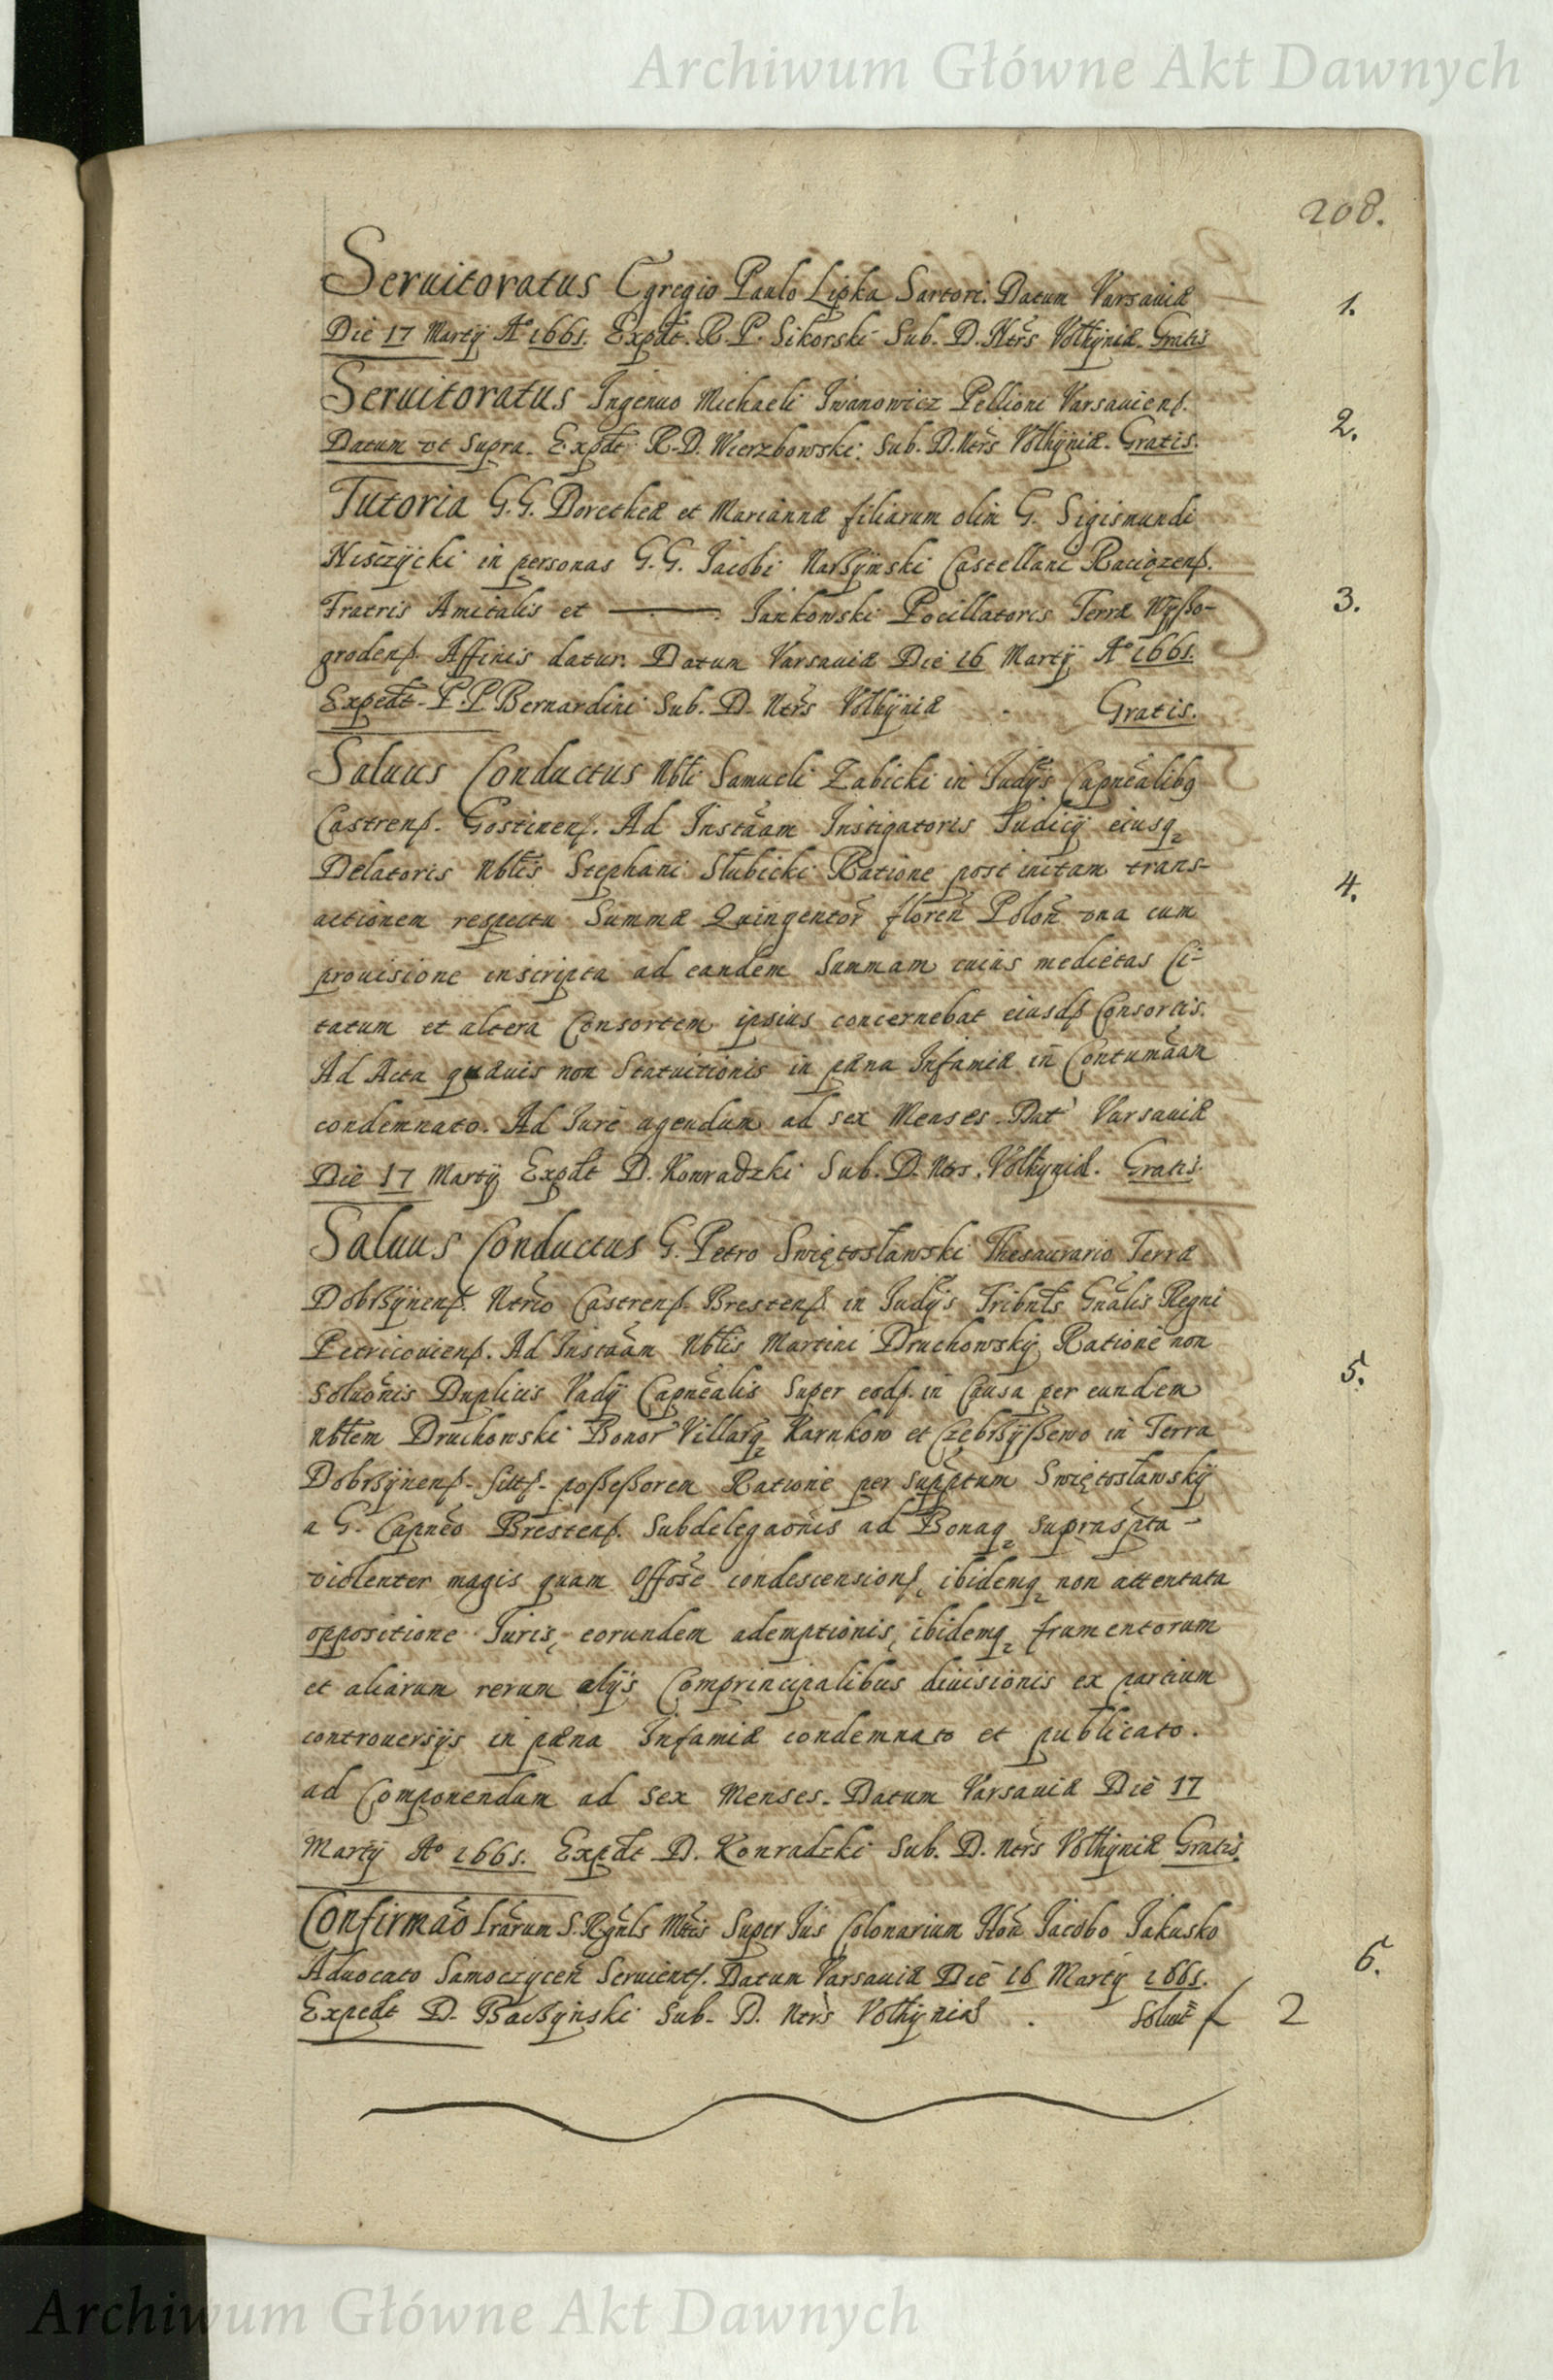 Archiwum Główne Akt Dawnych
208.
Seruitoratus Egregio Paulo Lipka Sartori. Datum Varsauiæ
1.
Die 17 Martÿ A° 1661. Expdt. R. P. Sikorski Sub. D. Ntrs Volhÿniæ. Gratis
Seruitoratus Ingenuo Michaeli Iwanowicz Pellioni Varsauiens.
2.
Datum vt Supra. Expdt R. D. Wierzbowski Sub. D. Ntrs Volhÿniæ. Gratis.
Tutoria G. G. Dorotheæ et Mariannæ filiarum olim G. Sigismundi
Nisczÿcki in personas G. G. Iacobi Narßÿnski Castellani Raciązenß.
Fratris Amitalis et ——— Iankowski Pocillatoris Terræ Wÿßo-
3.
grodenß. Affinis datur. Datum Varsauiæ Die 16 Martÿ A° 1661.
Expedt. P. P. Bernardini Sub. D. Ntrs Volhÿniæ . Gratis.
Saluus Conductus Nbli Samueli Zabicki in Iudÿs Capnealibq
Castrenß. Gostinenß. Ad Instãam Instigatoris Iudicÿ eiusq
Delatoris Nblis Stephani Słubicki Ratione post initam trans-
4.
actionem respectu Summæ Quingentor floren Polon vna cum
prouisione inscripta ad eandem Summam cuius medietas Ci-
tatum et altera Consortem ipsius concernebat eiusdß Consortis.
Ad Acta quæuis non Statuitionis in pæna Infamiæ in Contumãan
condemnato. Ad Iure agendum ad sex Menses. Dat Varsauiæ
Die 17 Martÿ Expdt D. Konradzki Sub. D. Ntrs. Volhyniæ. Gratis.
Saluus Conductus G. Petro Swiętosławski Thesaurario Terræ
Dobrßÿnenß. Ntrio Castrenß. Brestenß. in Iudÿs Tribnls Gnãlis Regni
Petricouienß. Ad Instãam Nblis Martini Druchowskÿ Ratione non
5.
Soluõnis Duplicis Vadÿ Capnealis Super eodß. in Causa per eundem
Nblem Druchowski Bonor Villarq Karnkow et Czebrßÿßewo in Terra
Dobrßÿnenß. poßeßorem Ratione per supptum Swiętosławskÿ
a G. Capneo Brestenß. Subdelegaõnis ad Bonaq supraspta -
violenter magis quam Offose condescensionß, ibidemq non attentata
oppositione Iuris, eorundem ademptionis, ibidemq frumentorum
et aliarum rerum alÿs Comprincipalibus diuisionis ex partium
controuersÿs in pæna Infamiæ condemnato et publicato.
ad Componendum ad sex Menses. Datum Varsauiæ Die 17
Martÿ A° 1661. Expdt D. Konradzki Sub. D. Ntrs Volhÿniæ Gratis.
Confirmaõ lrarum S. Rgnls Mttis Super Ius Colonarium Hon Iacobo Iakusko
Aduocato Samoczÿcen Seruientß. Datum Varsauiæ Die 16 Martÿ 1661.
6.
Expedt D. Baeßÿnski Sub. D. Ntrs Volhÿniæ . Soluit f 2
Archiwum Główne Akt Dawnych